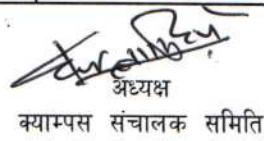 अध्यक्ष
क्याम्पस संचालक समिति